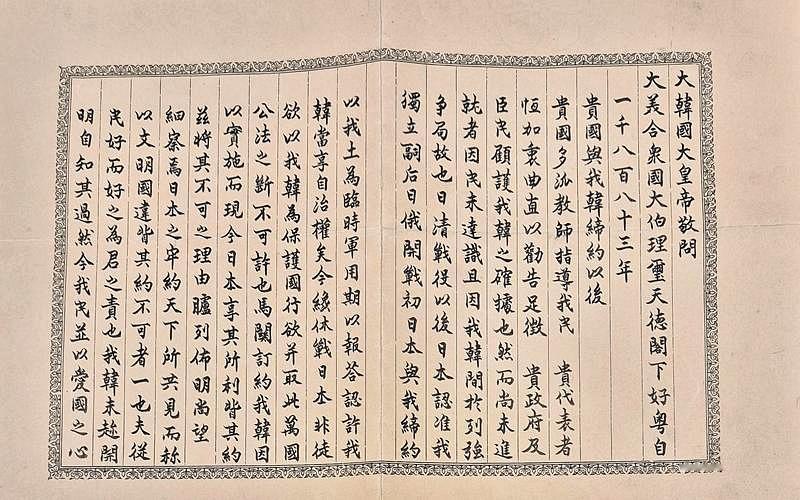 大韓國大皇帝敬問
大美合衆國大伯理璽天德閣下好粤自
一千八百八十三年
貴國與我韓締約以後
貴國多派教師指導我民 貴代表者
恒加衷曲直以勸告足徵 貴政府及
臣民顧護我韓之確據也然而尚未進
就者因民未達識且因我韓間於列強
争局故也日清戰役以後日本認准我
獨立嗣后日俄開戰初日本與我締約
以我土為臨時軍用期以報答認許我
韓當享自治權矣今纔休戰日本非徒
欲以我韓為保護國行欲并取此萬國
公法之斷不可許也馬關訂約我韓因
以實施而現今日本享其所利背其約
玆將其不可之理由臚列佈明尚望
細察焉日本之牢約天下所共見而称
以文明國違背其約不可者一也夫從
民好而好之為君之責也我韓未趍開
明自知其過然今我民並以愛國之心